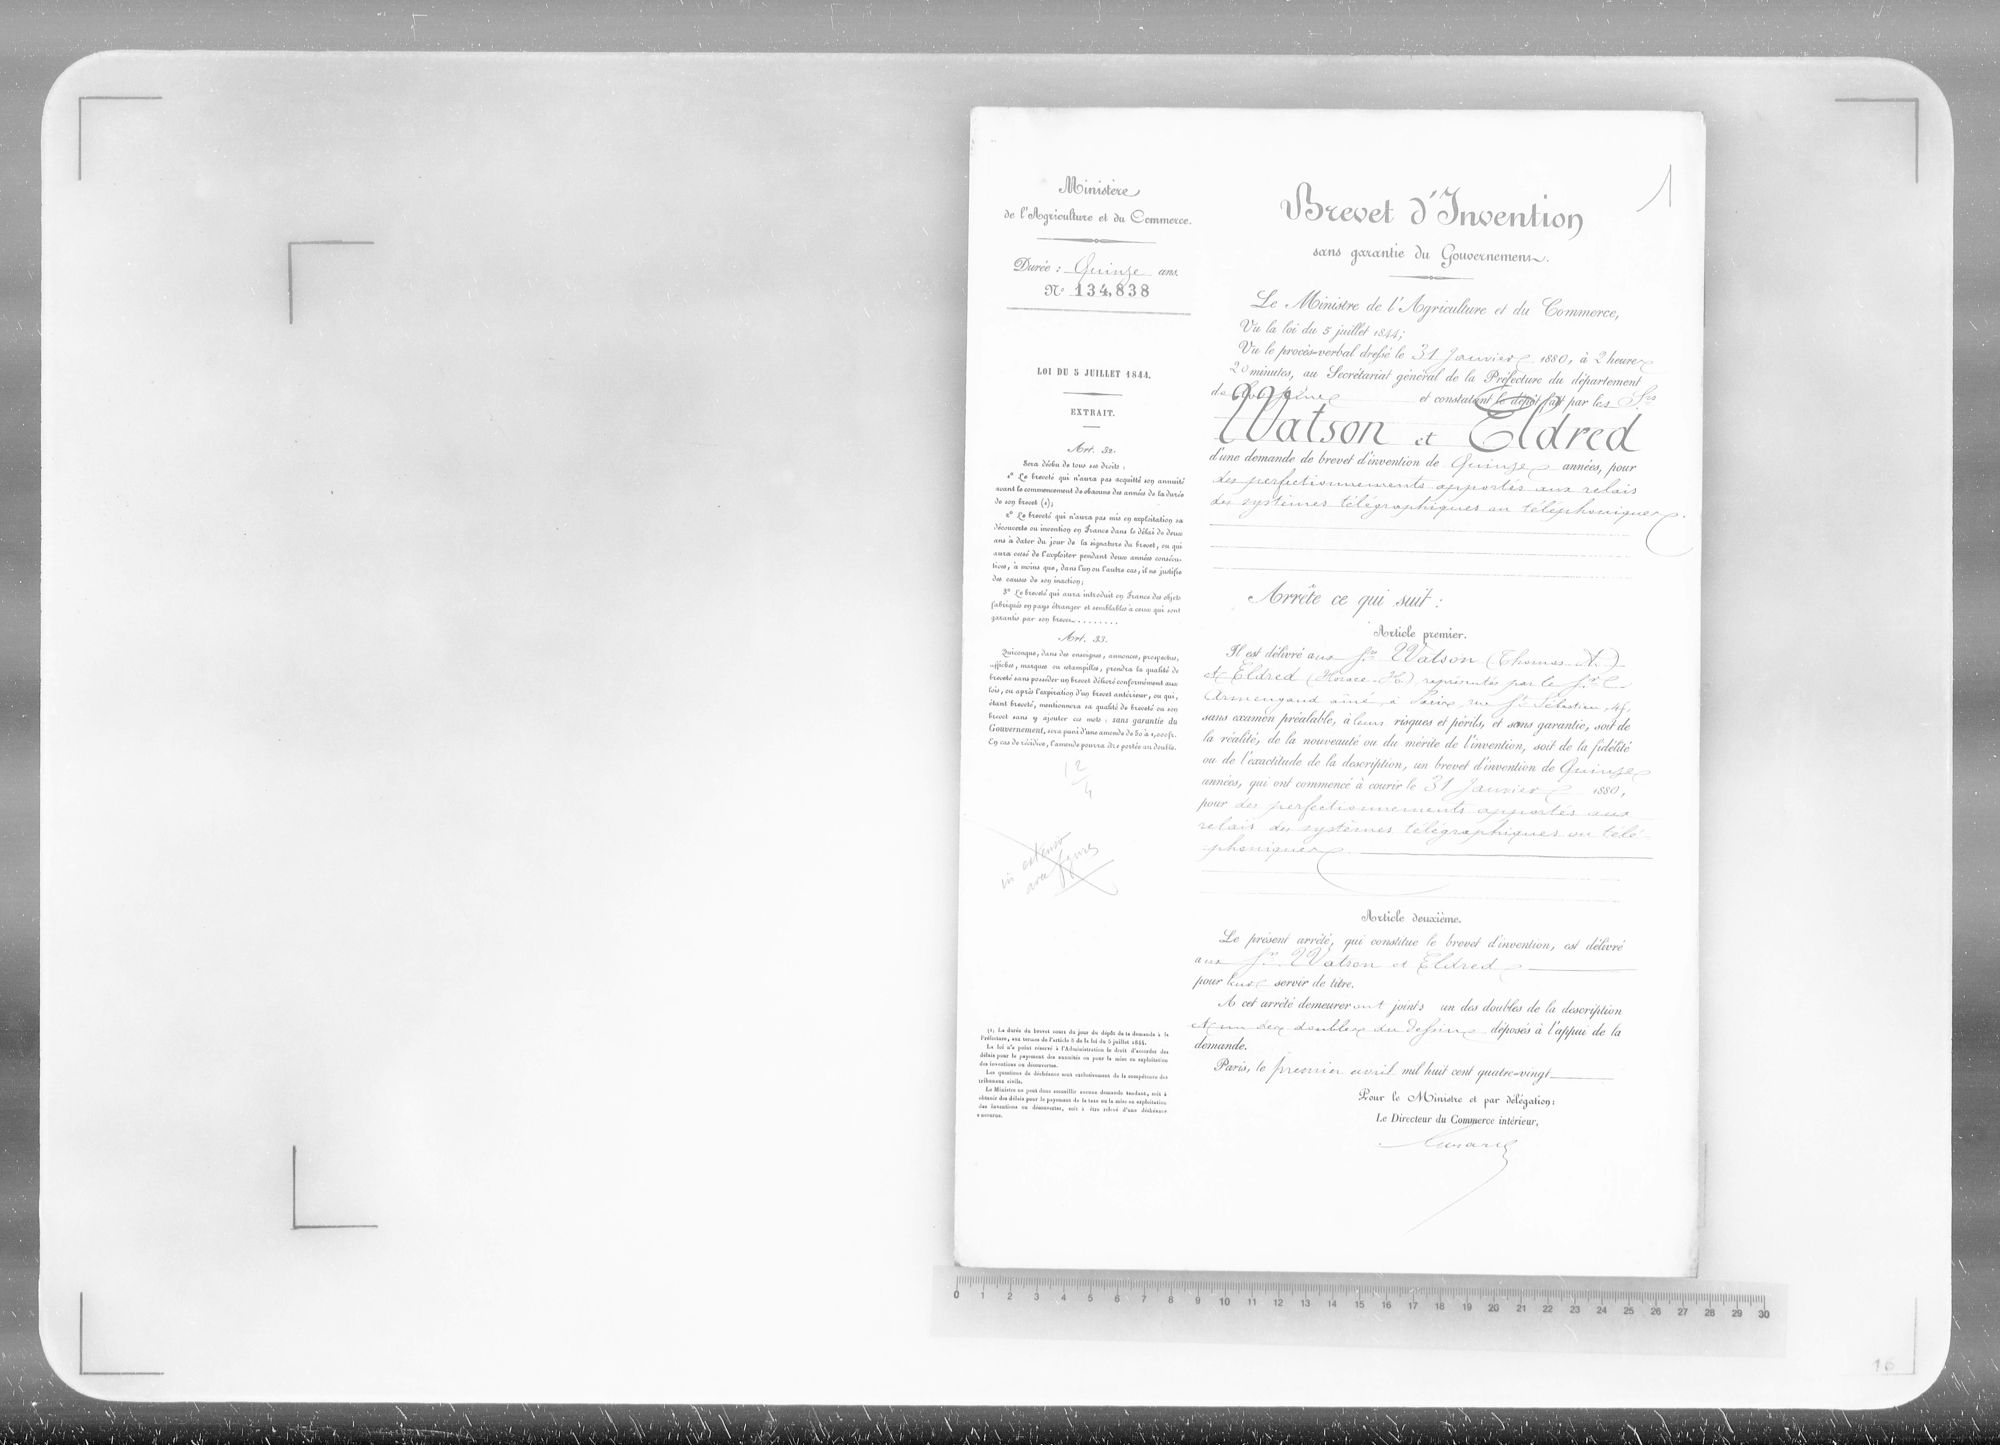 Ministère
de l'Agriculture et du Commerce.
Durée : Quinze ans.
N° 134,838
LOI DU 5 JUILLET 1844.
EXTRAIT.
Art. 32.
Sera déchu de tous ses droits :
1° Le breveté qui n'aura pas acquitté son annuité
avant le commencement de chacune des années de la durée
de son brevet (1);
2° Le breveté qui n'aura pas mis en exploitation sa
découverte ou invention en France dans le délai de deux
ans à dater du jour de la signature du brevet, ou qui
aura cessé de l'exploiter pendant deux années consécu-
tives, à moins que, dans l'un ou l'autre cas, il ne justifie
des causes de son inaction;
3° Le breveté qui aura introduit en France des objets
fabriqués en pays étranger et semblables à ceux qui sont
garantis par son brevet.........
Art. 33.
Quiconque, dans des enseignes, annonces, prospectus,
affiches, marques ou estampilles, prendra la qualité de
breveté sans posséder un brevet délivré conformément aux
lois, ou après l'expiration d'un brevet antérieur, ou qui,
étant breveté, mentionnera sa qualité de breveté ou son
brevet sans y ajouter ces mots : sans garantie du
Gouvernement, sera puni d'une amende de 50 à 1,000 fr.
En cas de récidive, l'amende pourra être portée au double.
12
4
in extenso
avec figures
(1) La durée du brevet court du jour du dépôt de la demande à la
Préfecture, aux termes de l'article 8 de la loi du 5 juillet 1844.
La loi n'a point réservé à l'Administration le droit d'accorder des
délais pour le payement des annuités ou pour la mise en exploitation
des inventions ou découvertes.
Les questions de déchéance sont exclusivement de la compétence des
tribunaux civils.
Le Ministre ne peut donc accueillir aucune demande tendant, soit à
obtenir des délais pour le payement de la taxe ou la mise en exploitation
des inventions ou découvertes, soit à être relevé d'une déchéance
encourue.
1
Brevet d'Invention
sans garantie du Gouvernement.
Le Ministre de l'Agriculture et du Commerce,
Vu la loi du 5 juillet 1844;
Vu le procès-verbal dressé le 31 Janvier 1880, à 2 heures
20 minutes, au Secrétariat général de la Préfecture du département
de la Seine et constatant le dépôt fait par les Srs
Watson et Eldred
d'une demande de brevet d'invention de Quinze années, pour
des perfectionnements apportés aux relais
des systèmes télégraphiques ou téléphoniques.
Arrête ce qui suit :
Article premier.
Il est délivré aux Srs Watson (Thomas-A.)
et Eldred (Horace-H.) représentés par le Sr
Armengaud aîné, à Paris, rue St Sébastien, 45,
sans examen préalable, à leurs risques et périls, et sans garantie, soit de
la réalité, de la nouveauté ou du mérite de l'invention, soit de la fidélité
ou de l'exactitude de la description, un brevet d'invention de Quinze
années, qui ont commencé à courir le 31 Janvier 1880,
pour des perfectionnements apportés aux
relais des systèmes télégraphiques ou télé-
phoniques
Article deuxième.
Le présent arrêté, qui constitue le brevet d'invention, est délivré
aux Srs Watson et Eldred
pour leur servir de titre.
A cet arrêté demeureront joints un des doubles de la description
et un des doubles du dessin déposés à l'appui de la
demande.
Paris, le premier avril mil huit cent quatre-vingt
Pour le Ministre et par délégation :
Le Directeur du Commerce intérieur,
0 1 2 3 4 5 6 7 8 9 10 11 12 13 14 15 16 17 18 19 20 21 22 23 24 25 26 27 28 29 30
16